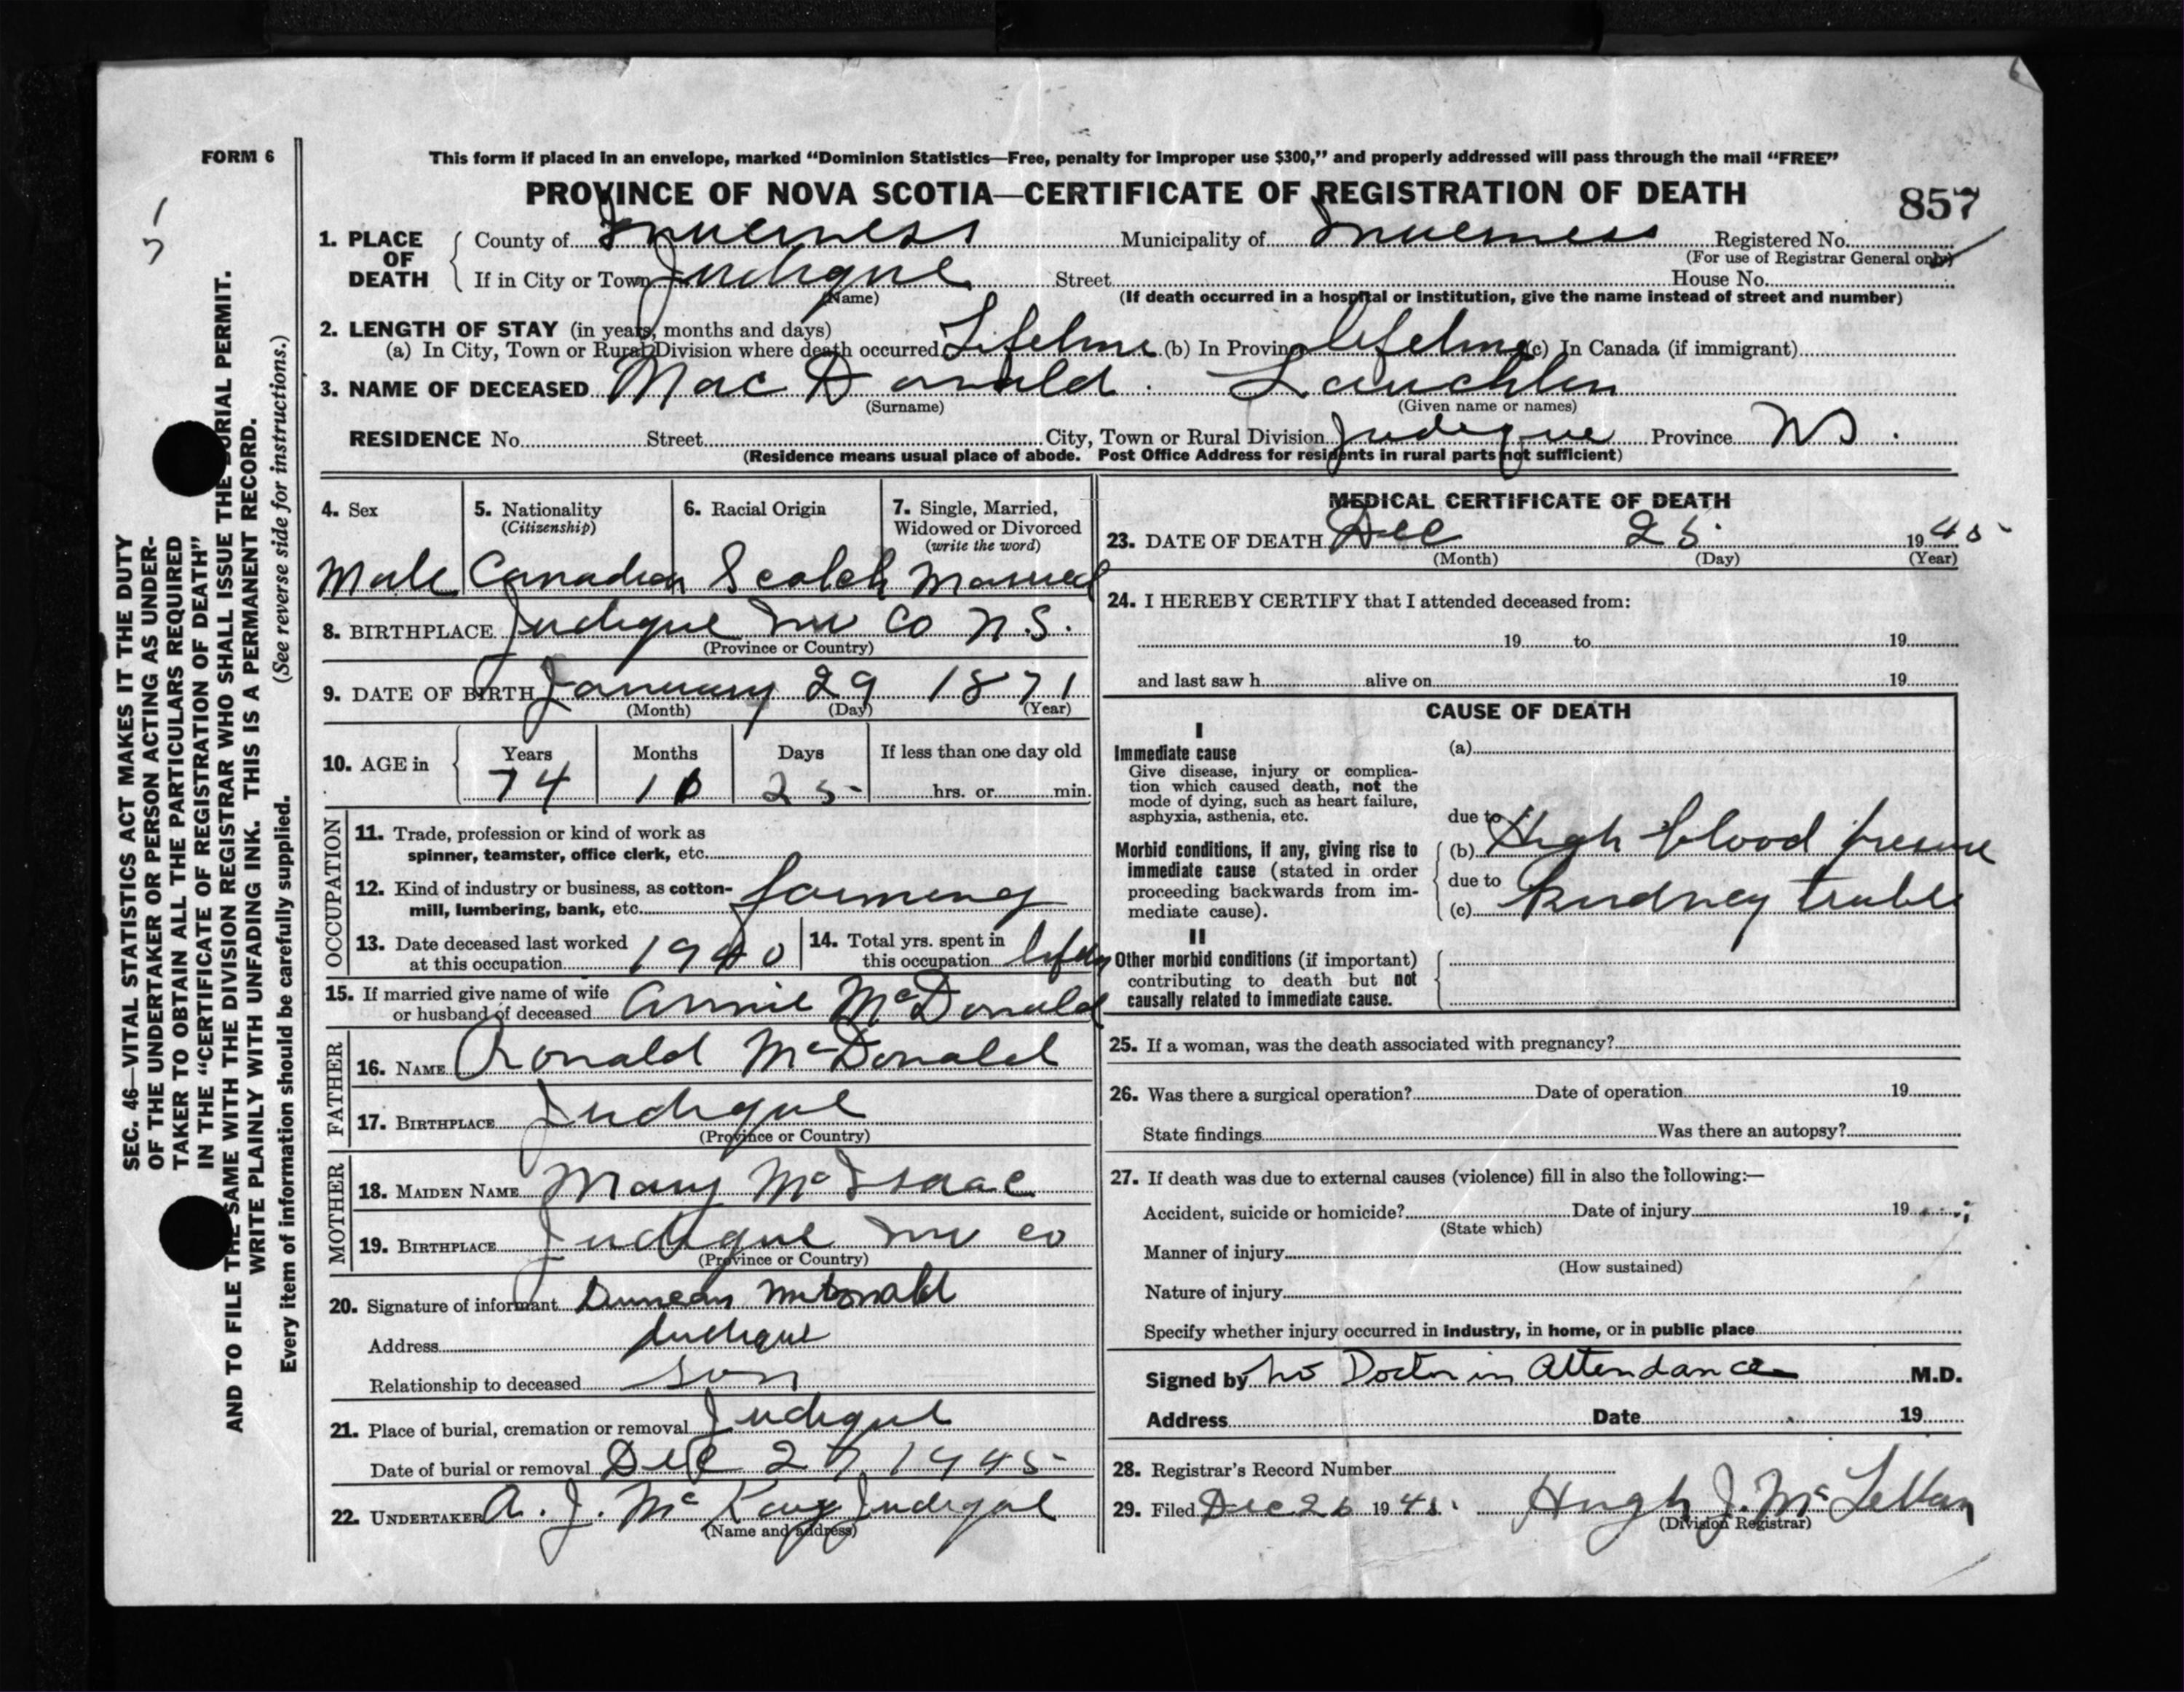 FORM 6
This form if placed in an envelope, marked “Dominion Statistics—Free, penalty for improper use $300,” and properly addressed will pass through the mail “FREE”
PROVINCE OF NOVA SCOTIA—CERTIFICATE OF REGISTRATION OF DEATH
857
1. PLACE OF DEATH
County of Inverness Municipality of Inverness Registered No.
(For use of Registrar General only)
If in City or Town Judique Street House No.
(Name) (If death occurred in a hospital or institution, give the name instead of street and number)
2. LENGTH OF STAY (in years, months and days)
(a) In City, Town or Rural Division where death occurred Lifetime (b) In Province lifetime (c) In Canada (if immigrant)
3. NAME OF DECEASED MacDonald Lauchlin
(Surname) (Given name or names)
RESIDENCE No. Street City, Town or Rural Division Judique Province NS.
(Residence means usual place of abode. Post Office Address for residents in rural parts not sufficient)
4. Sex
Male
5. Nationality
(Citizenship)
Canadian
6. Racial Origin
Scotch
7. Single, Married,
Widowed or Divorced
(write the word)
Married
8. BIRTHPLACE Judique Inv Co N.S.
(Province or Country)
9. DATE OF BIRTH January 29 1871
(Month) (Day) (Year)
10. AGE in
Years Months Days If less than one day old
74 10 25 hrs. or min.
OCCUPATION
11. Trade, profession or kind of work as
spinner, teamster, office clerk, etc.
12. Kind of industry or business, as cotton-
mill, lumbering, bank, etc. farming
13. Date deceased last worked
at this occupation 1940
14. Total yrs. spent in
this occupation
15. If married give name of wife
or husband of deceased Annie McDonald
FATHER
16. NAME Ronald McDonald
17. BIRTHPLACE Judique
(Province or Country)
MOTHER
18. MAIDEN NAME Mary McIsaac
19. BIRTHPLACE Judique Inv co
(Province or Country)
20. Signature of informant Duncan McDonald
Address Judique
Relationship to deceased son
21. Place of burial, cremation or removal Judique
Date of burial or removal Dec 27 1945
22. UNDERTAKER A. J. McKay Judique
(Name and address)
MEDICAL CERTIFICATE OF DEATH
23. DATE OF DEATH Dec 25 1945
(Month) (Day) (Year)
24. I HEREBY CERTIFY that I attended deceased from:
19 to 19
and last saw h alive on 19
CAUSE OF DEATH
I
Immediate cause
Give disease, injury or complica-
tion which caused death, not the
mode of dying, such as heart failure,
asphyxia, asthenia, etc.
(a)
due to
Morbid conditions, if any, giving rise to
immediate cause (stated in order
proceeding backwards from im-
mediate cause).
(b) High blood pressure
due to
(c) Kidney truble
II
Other morbid conditions (if important)
contributing to death but not
causally related to immediate cause.
25. If a woman, was the death associated with pregnancy?
26. Was there a surgical operation? Date of operation 19
State findings Was there an autopsy?
27. If death was due to external causes (violence) fill in also the following:—
Accident, suicide or homicide? Date of injury 19
(State which)
Manner of injury
(How sustained)
Nature of injury
Specify whether injury occurred in industry, in home, or in public place
Signed by No Doctor in Attendance M.D.
Address Date 19
28. Registrar's Record Number
29. Filed Dec 26 1945 Hugh J. McLellan
(Division Registrar)
SEC. 46—VITAL STATISTICS ACT MAKES IT THE DUTY
OF THE UNDERTAKER OR PERSON ACTING AS UNDER-
TAKER TO OBTAIN ALL THE PARTICULARS REQUIRED
IN THE “CERTIFICATE OF REGISTRATION OF DEATH”
AND TO FILE THE SAME WITH THE DIVISION REGISTRAR WHO SHALL ISSUE THE BURIAL PERMIT.
WRITE PLAINLY WITH UNFADING INK. THIS IS A PERMANENT RECORD.
(See reverse side for instructions.)
Every item of information should be carefully supplied.